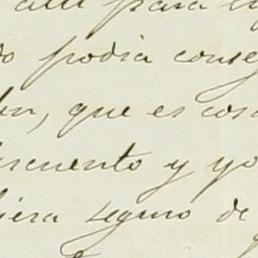 allí para
podia conse
que es cos
scuento y yo
iera seguro de